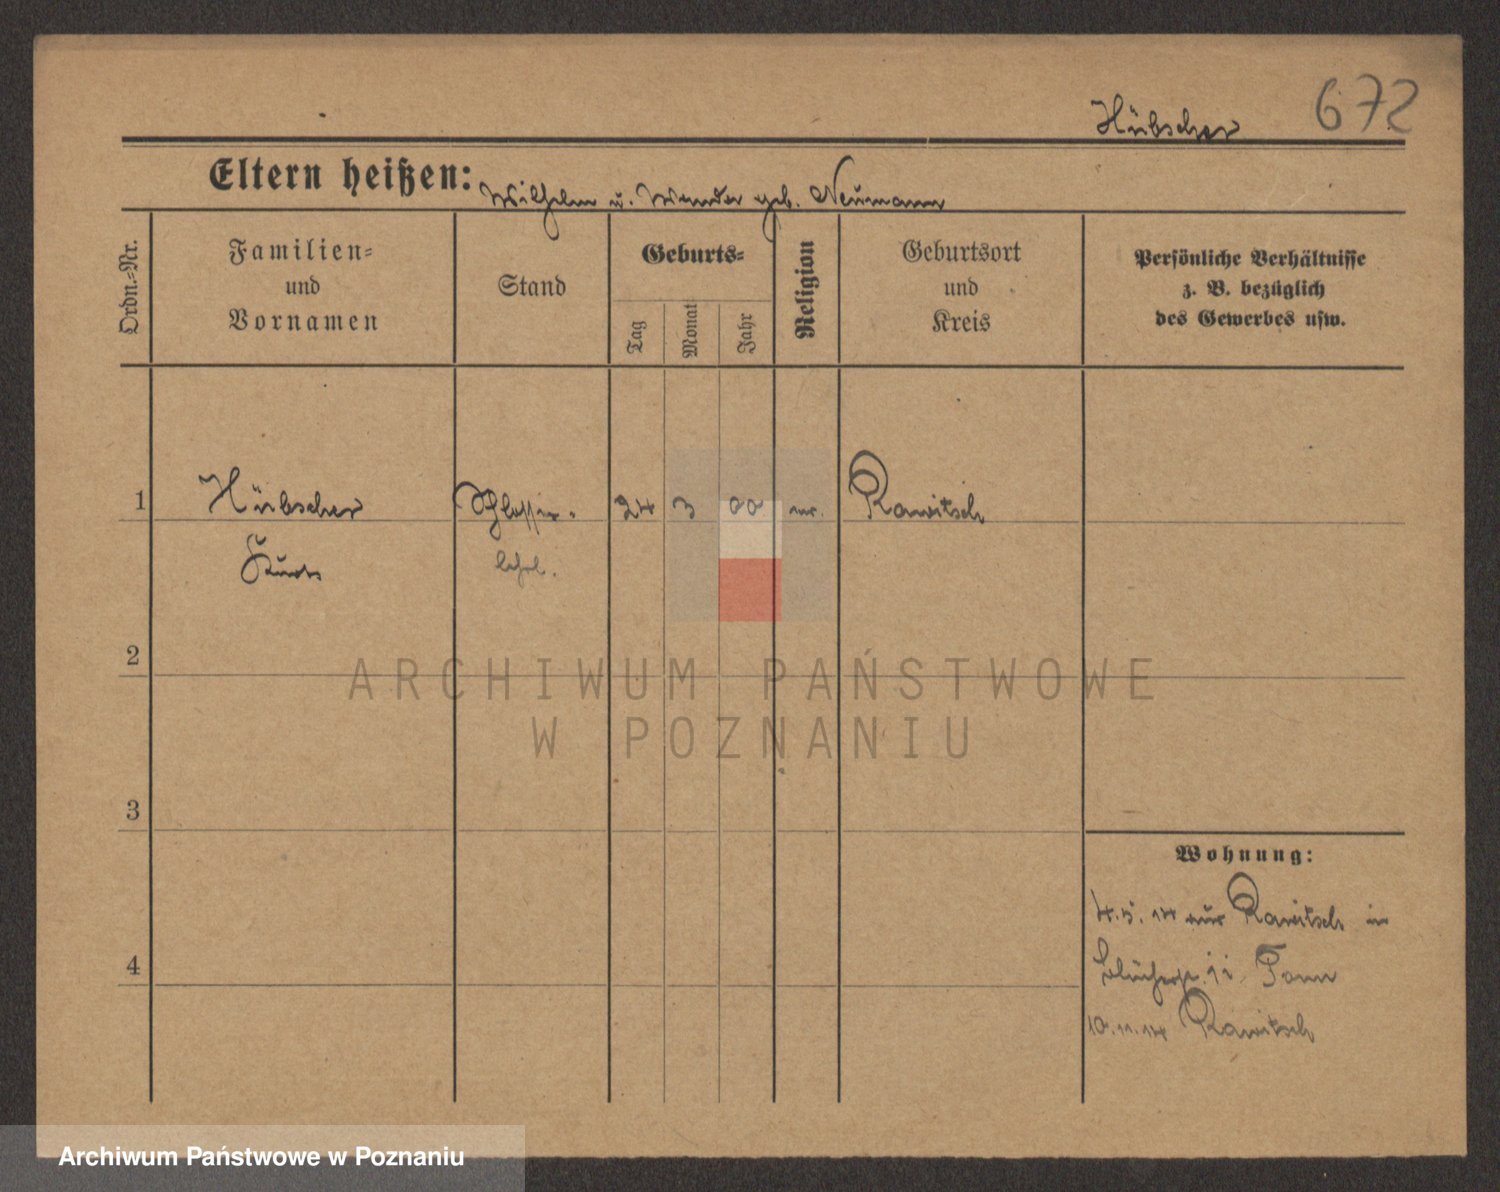 Hübscher 672
Eltern heißen: Wilhelm u. geb. Neumann
Ordn.-Nr.
Familien-
und
Vornamen
Stand
Geburts-
Tag
Monat
Jahr
Religion
Geburtsort
und
Kreis
Persönliche Verhältnisse
z. B. bezüglich
des Gewerbes usw.
1 Hübscher Schlosser- 24 3 00 Rawitsch
lehrl.
2
ARCHIWUM PAŃSTWOWE
W POZNANIU
3
Wohnung:
4. 5. 14 Rawitsch in
4
10. 11. 14 Rawitsch
Archiwum Państwowe w Poznaniu